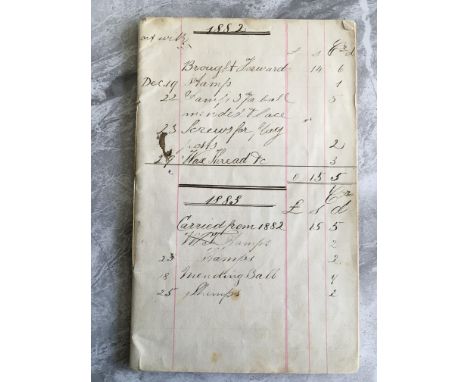 1882
£ s d
Brought Forward 14 6
Dec 19 Stamp 1
22 Stamps 3 Ball 5
mended & Lace
23 Screws for
2
27 Wax Thread &c 3
" 0 15 5
1883
£ s d
Carried from 1882 15 5
Stamps 2
23 Stamps 2
18 Mending Ball 4
25 Stamps 2